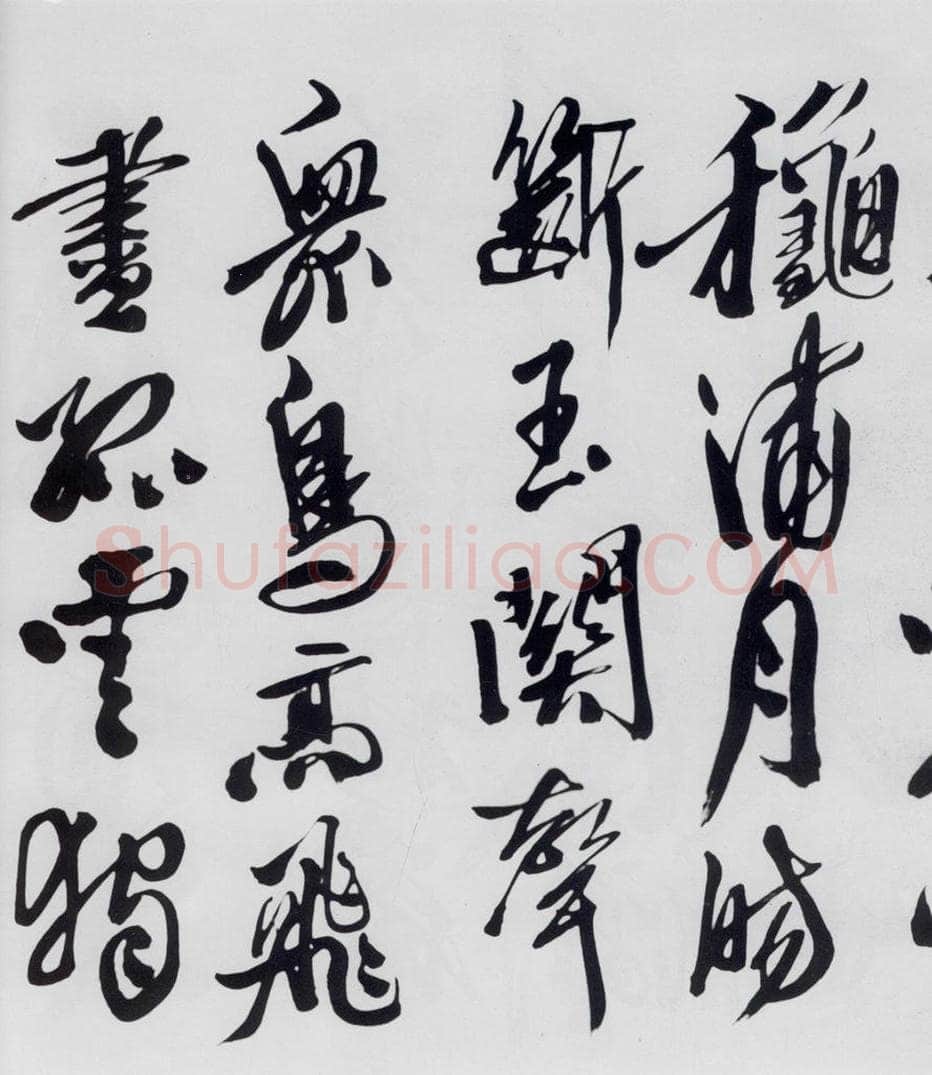 龝浦月腸
斷玉關聲
衆鳥高飛
盡孤雲獨
Shufaziliao.COM